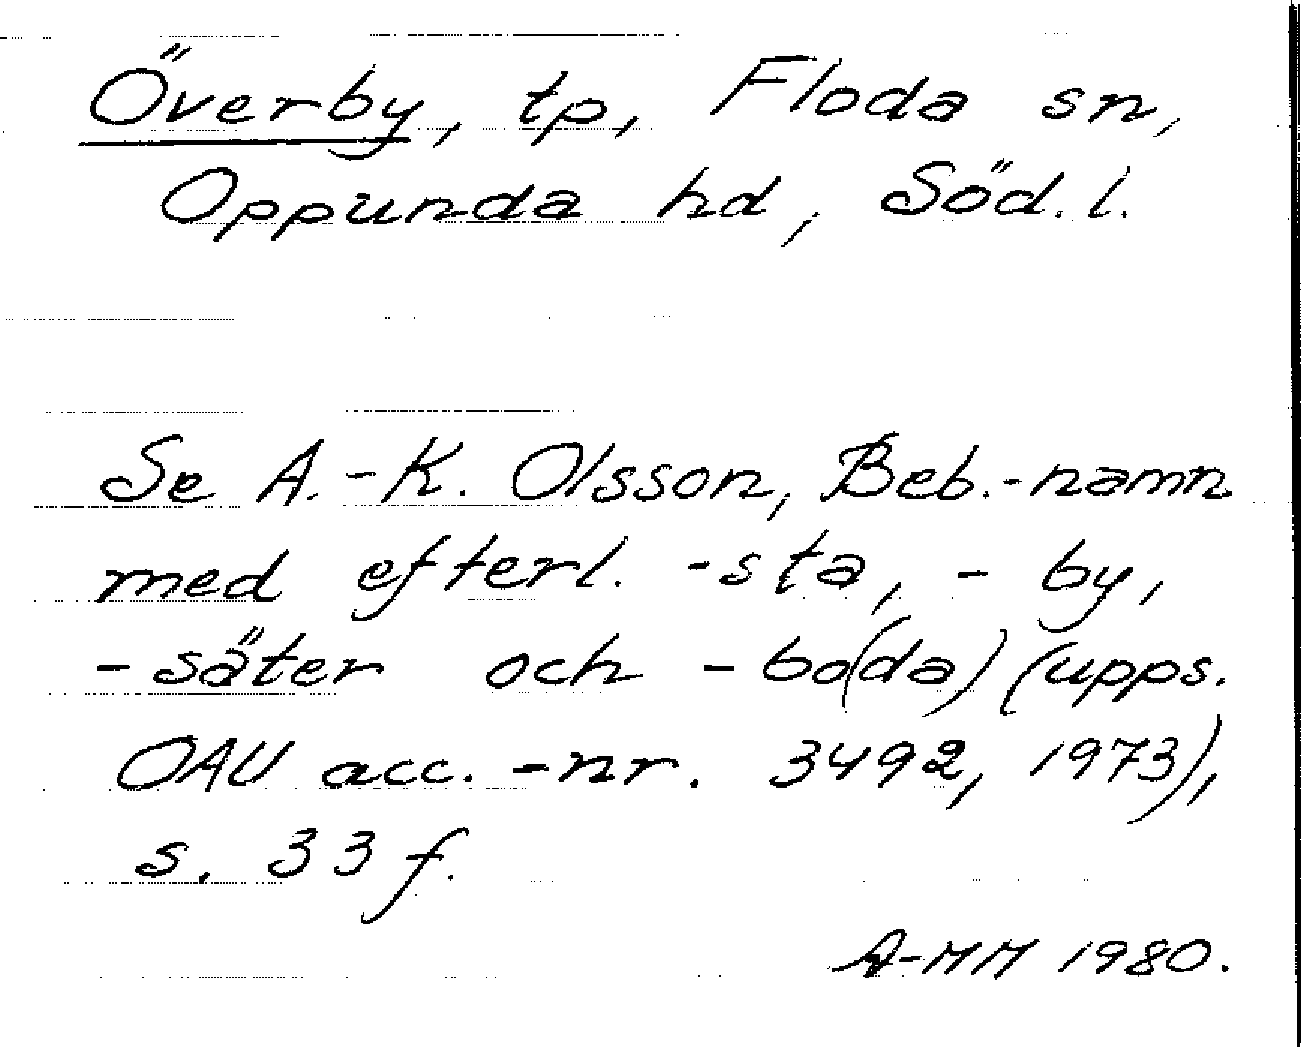 Överby, tp, Floda sn,
Oppunda hd, Söd. l.
Se A.-K. Olsson, Beb.-namn
med efterl. -sta, -by,
-säter och -bo(da) (upps.
OAU acc.-nr. 3492, 1973),
s. 33 f.
A-MM 1980.